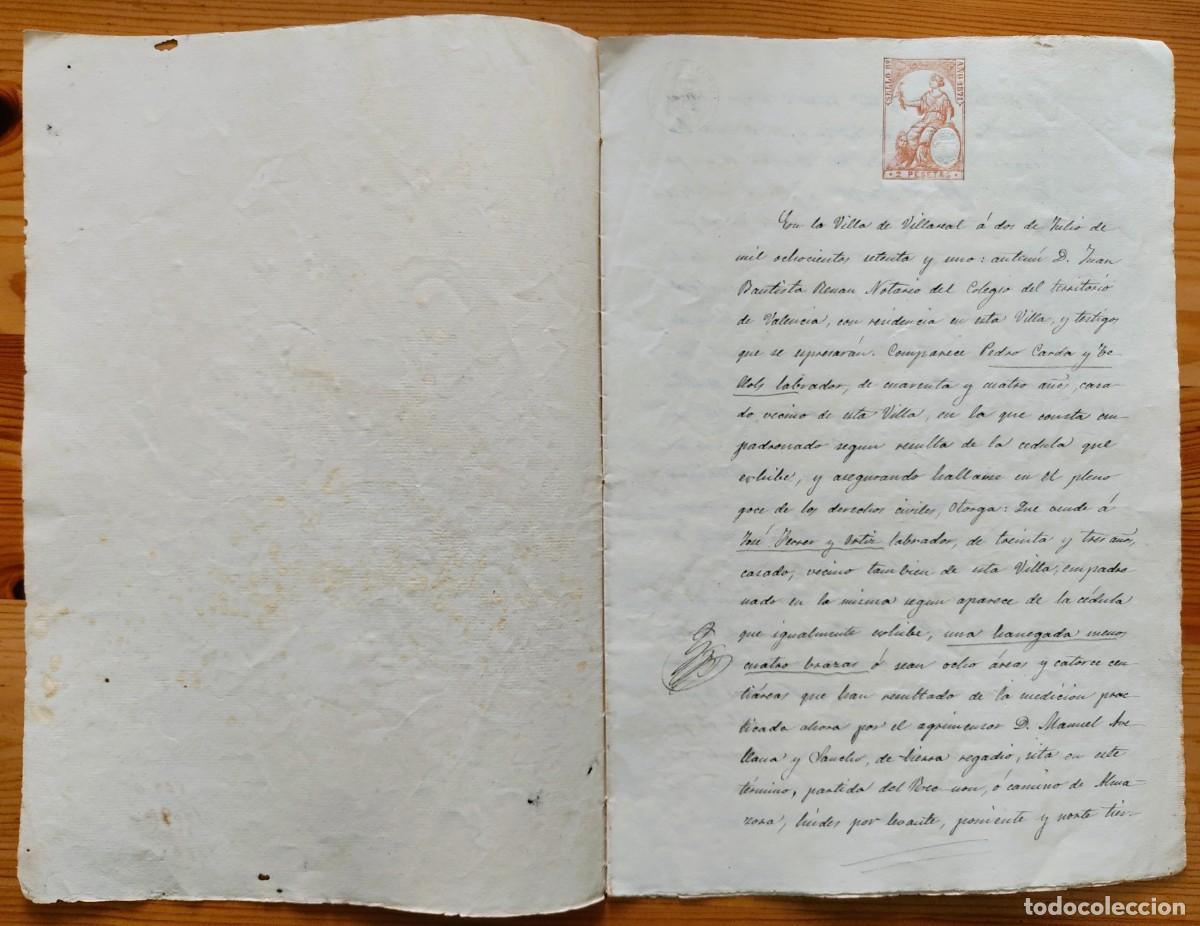 SELLO 9º AÑO 1871
2 PESETAS
En la Villa de Villareal á dos de Julio de
mil ochocientos setenta y uno: antemí D. Juan
Bautista Renau Notario del Colegio del territorio
de Valencia, con residencia en esta Villa, y testigos
que se espresarán. Comparece Pedro Carda y
labrador, de cuarenta y cuatro años, casa-
do, vecino de esta Villa, en la que consta em-
padronado segun resulta de la cédula que
exhibe, y asegurando hallarse en el pleno
goce de los derechos civiles, Otorga: Que vende á
José Ferrer y Ortiz labrador, de treinta y tres años,
casado, vecino tambien de esta Villa, empadro
nado en la misma segun aparece de la cédula
que igualmente exhibe, una hanegada menos
cuatro brazas ó sean ocho áreas y catorce cen-
tiáreas que han resultado de la medicion prac-
ticada ahora por el agrimensor D. Manuel Ave
llana y Sancho, de tierra regadio, sita en este
término, partida del ó camino de Alma-
zora, lindes por levante, poniente y norte tier-
todocoleccion